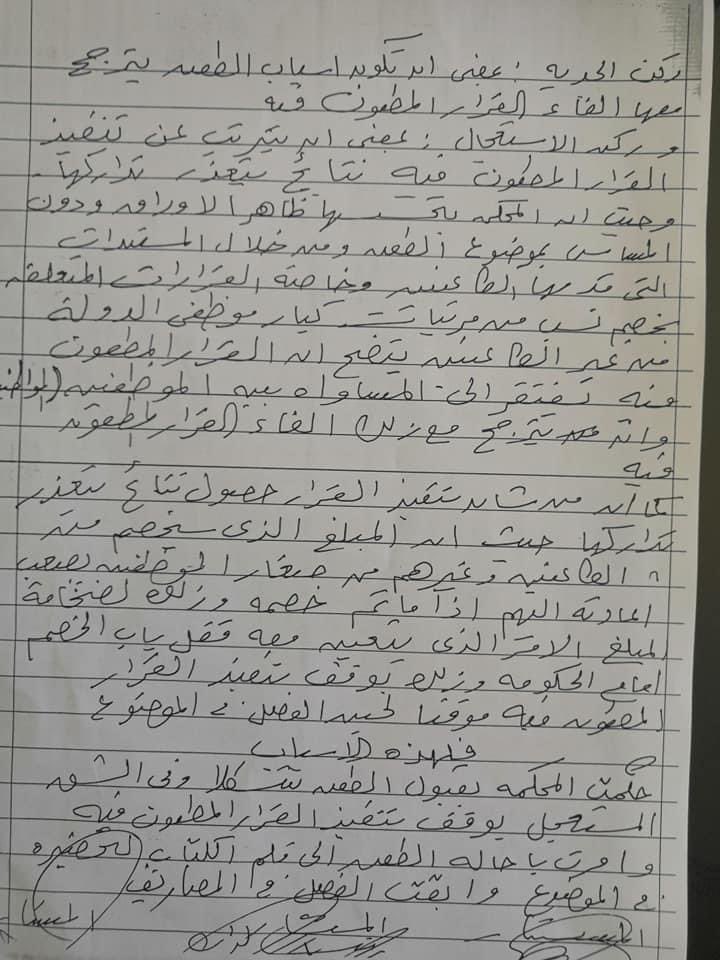 ركن الجدية : بمعنى ان تكون اسباب الطعن يترجح
معها الغاء القرار المطعون فيه
وركن الاستعجال : بمعنى ان يترتب عن تنفيذ
القرار المطعون فيه نتائج يتعذر تداركها.
وحيث ان المحكمه بتحسسها ظاهر الاوراق ودون
المساس بموضوع الطعن ومن خلال المستندات
التى قدمها الطاعنين وخاصة القرارات المتعلقه
بخصم نسب من مرتبات كبار موظفى الدولة
من غير الطاعنين يتضح ان القرار المطعون
فيه تفتقر الى المساواه بين الموظفين (المواطنين
وانه يترجح مع ذلك الغاء القرار المطعون
فيه
كما أن من شان تنفيذ القرار حصول نتائج يتعذر
تداركها حيث ان المبلغ الذى سيخصم من
الطاعنين وغيرهم من صغار الموظفين يصعب
اعادته اليهم اذا ماتم خصمه وذلك لضخامة
المبلغ الامر الذى يتعين معه قفل باب الخصم
امام الحكومه وذلك بوقف تنفيذ القرار
المطعون فيه موقتا لحين الفصل فى الموضوع
فلهذه الأسباب
حكمت المحكمه بقبول الطعن شكلا وفى الشق
المستعجل بوقف تنفيذ القرار المطعون فيه
وامرت باحاله الطعن الى قلم الكتاب لتحضيره
فى الموضوع وابقت الفصل فى المصاريف
المستشار